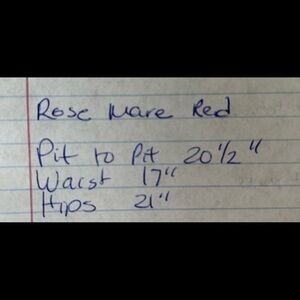 Rose Mare Red
Pit to Pit 20 1/2"
Waist 17"
Hips 21"